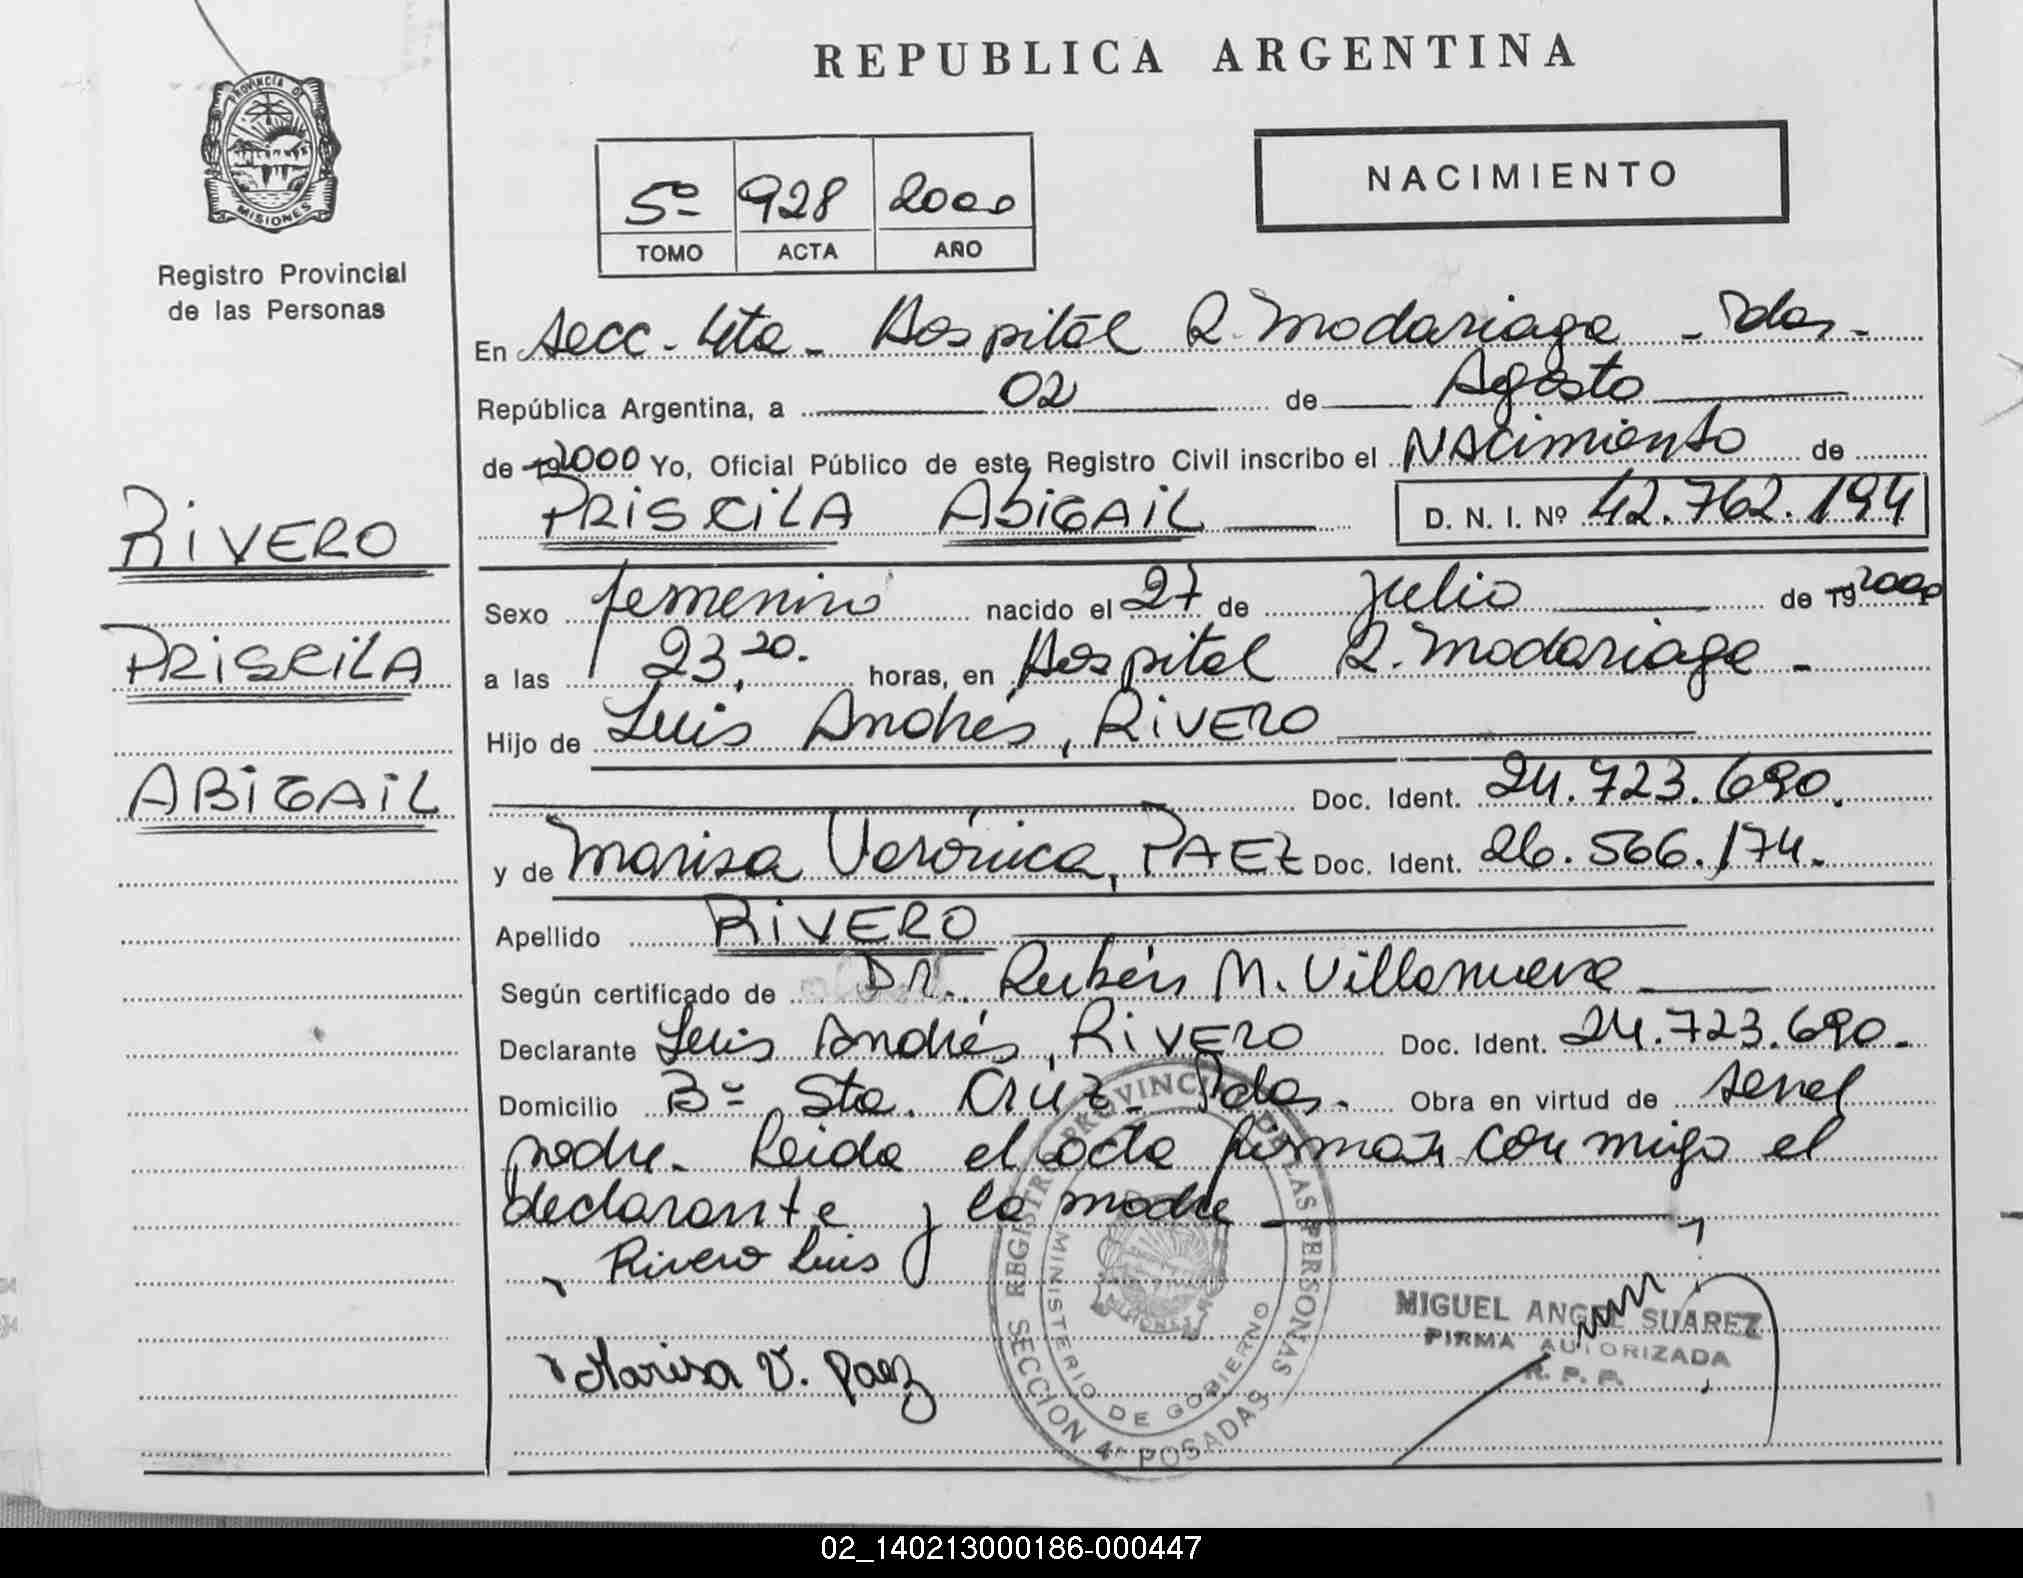 REPUBLICA ARGENTINA
PROVINCIA DE
MISIONES
Registro Provincial
de las Personas
5º 928 2000
TOMO ACTA AÑO
NACIMIENTO
En Secc. 4ta - Hospital R. Madariaga - Pdas -
República Argentina, a 02 de Agosto
de 19 2000 Yo, Oficial Público de este Registro Civil inscribo el NAcimiento de
PRISCILA ABIGAIL D. N. I. Nº 42.762.194
RIVERO
PRISCILA
ABIGAIL
Sexo femenino nacido el 27 de julio de 19 2000
a las 23,20. horas, en Hospital R. Madariaga -
Hijo de Luis Andrés, RIVERO
Doc. Ident. 24.723.690.
y de Marisa Verónica, PAEZ Doc. Ident. 26.566.174.
Apellido RIVERO
Según certificado de Dr. Rubén M. Villanueva
Declarante Luis Andrés, RIVERO Doc. Ident. 24.723.690.
Domicilio Bº Sta. Crúz - Pdas. Obra en virtud de ser el
padre. Leida el acta firman conmigo el
declarante y la madre
Rivero Luis
Marisa V. Paez
REGISTRO PROVINCIAL DE LAS PERSONAS
MINISTERIO DE GOBIERNO
MISIONES
SECCION 4ª POSADAS
MIGUEL ANGEL SUAREZ
FIRMA AUTORIZADA
R. P. P.
02_140213000186-000447